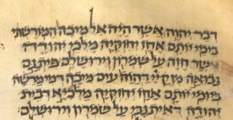 דבר יהוה אשר היה אל מיכה המורשתי
בימי יותם אחז יחזקיה מלכי יהודה
אשר חזה על שמרון וירושלם פתגם
נבואה מן קדם יהוה דהוה עם מיכה דממרשה
ביומי יותם אחז יחזקיה מלכיא דבית
יהודה דאיתנבי על שמרון וירושלם